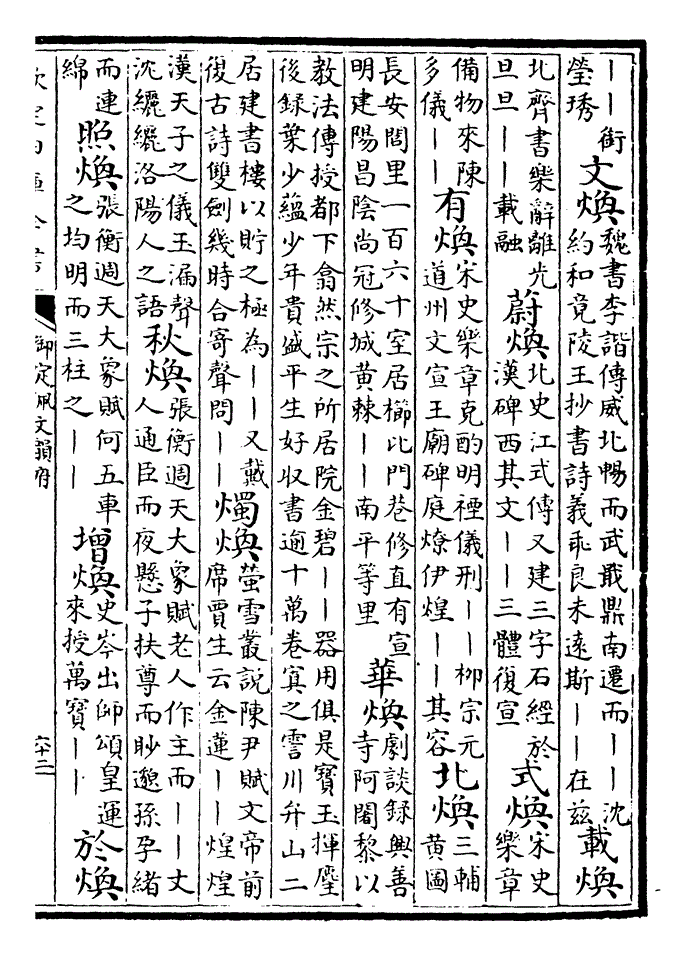 ——銜
瑩琇
文煥
魏書李諧傳威北暢而武戢鼎南遷而——沈
約和竟陵王抄書詩義乖良未遠斯——在兹
載煥
北齊書樂辭離光
旦旦——載融
蔚煥
北史江式傳又建三字石經於
漢碑西其文——三體復宣
式煥
宋史
樂章
備物來陳
多儀——
有煥
宋史樂章克酌明禋儀刑——柳宗元
道州文宣王廟碑庭燎伊煌——其容
北煥
三輔
黄圖
長安閭里一百六十室居櫛比門巷修直有宣
明建陽昌陰尚冠修城黄棘——南平等里
華煥
劇談録興善
寺阿闍黎以
教法傳授都下翕然宗之所居院金碧——器用俱是寶玉揮麈
後録葉少藴少年貴盛平生好収書逾十萬卷寘之霅川弁山二
居建書樓以貯之極為——又戴
復古詩雙劍幾時合寄聲問——
燭煥
螢雪叢説陳尹賦文帝前
席賈生云金蓮——煌煌
漢天子之儀玉漏聲
沈纚纚洛陽人之語
秋煥
張衡週天大象賦老人作主而——丈
人通臣而夜懸子扶尊而眇邈孫孕緒
而連
綿
照煥
張衡週天大象賦何五車
之均明而三柱之——
增煥
史岑出師頌皇運
來授萬寶——
於煥
欽定四庫全書
御定佩文韻府
六十二